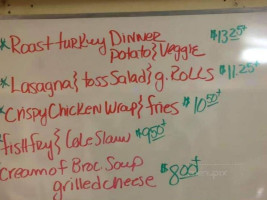 *Roast turkey DINNER $13.25+
Potato} Veggie
*Lasagna} toss Salad} g. ROLLS $11.25+
*Crispy Chicken Wrap} fries $10.50+
fish fry} Cole Slaw $9.50+
Cream of Broc Soup $8.00+
grilled cheese